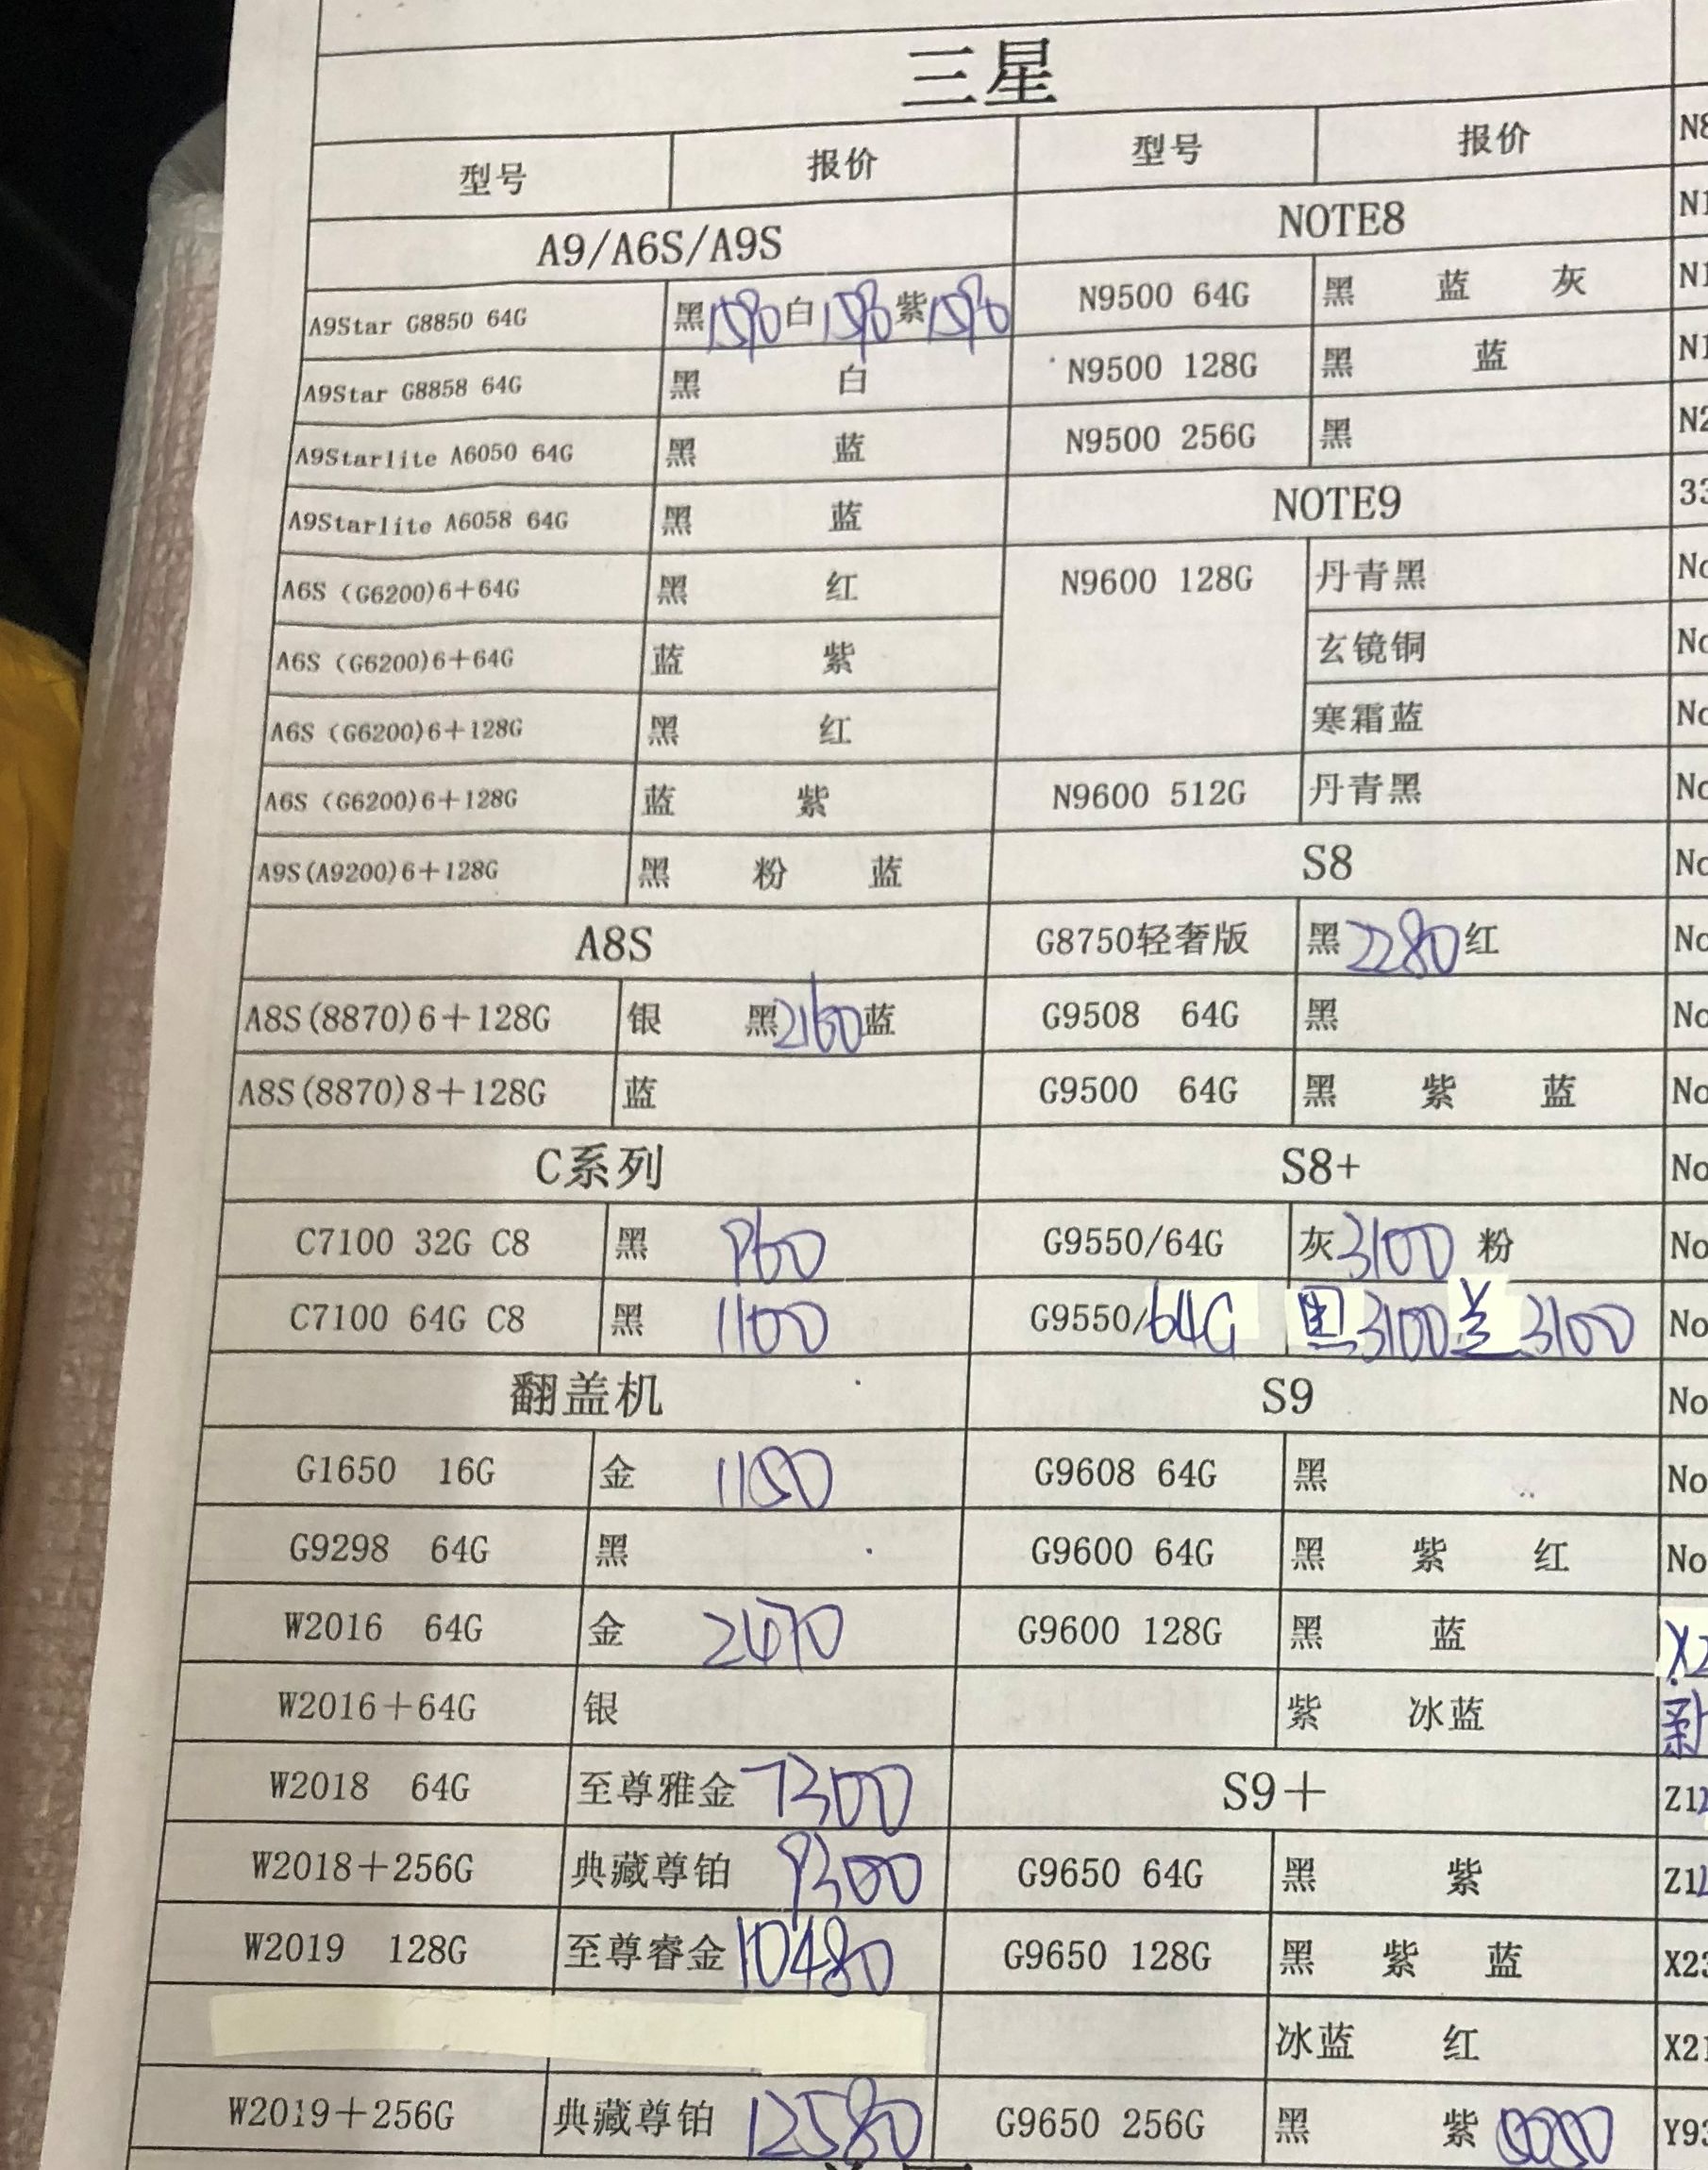 三星
型号 报价 型号 报价
A9/A6S/A9S NOTE8
A9Star G8850 64G 黑1580白1580紫1580 N9500 64G 黑 蓝 灰
A9Star G8858 64G 黑 白 N9500 128G 黑 蓝
A9Starlite A6050 64G 黑 蓝 N9500 256G 黑
A9Starlite A6058 64G 黑 蓝 NOTE9
A6S (G6200)6+64G 黑 红 N9600 128G 丹青黑
A6S (G6200)6+64G 蓝 紫 玄镜铜
A6S (G6200)6+128G 黑 红 寒霜蓝
A6S (G6200)6+128G 蓝 紫 N9600 512G 丹青黑
A9S(A9200)6+128G 黑 粉 蓝 S8
A8S G8750轻奢版 黑2280红
A8S(8870)6+128G 银 黑2160蓝 G9508 64G 黑
A8S(8870)8+128G 蓝 G9500 64G 黑 紫 蓝
C系列 S8+
C7100 32G C8 黑 960 G9550/64G 灰3100 粉
C7100 64G C8 黑 1100 G9550/64G 黑3100 兰3100
翻盖机 S9
G1650 16G 金 1150 G9608 64G 黑
G9298 64G 黑 G9600 64G 黑 紫 红
W2016 64G 金 2470 G9600 128G 黑 蓝
W2016+64G 银 紫 冰蓝
W2018 64G 至尊雅金7300 S9+
W2018+256G 典藏尊铂 9300 G9650 64G 黑 紫
W2019 128G 至尊睿金10480 G9650 128G 黑 紫 蓝
冰蓝 红
W2019+256G 典藏尊铂 12580 G9650 256G 黑 紫